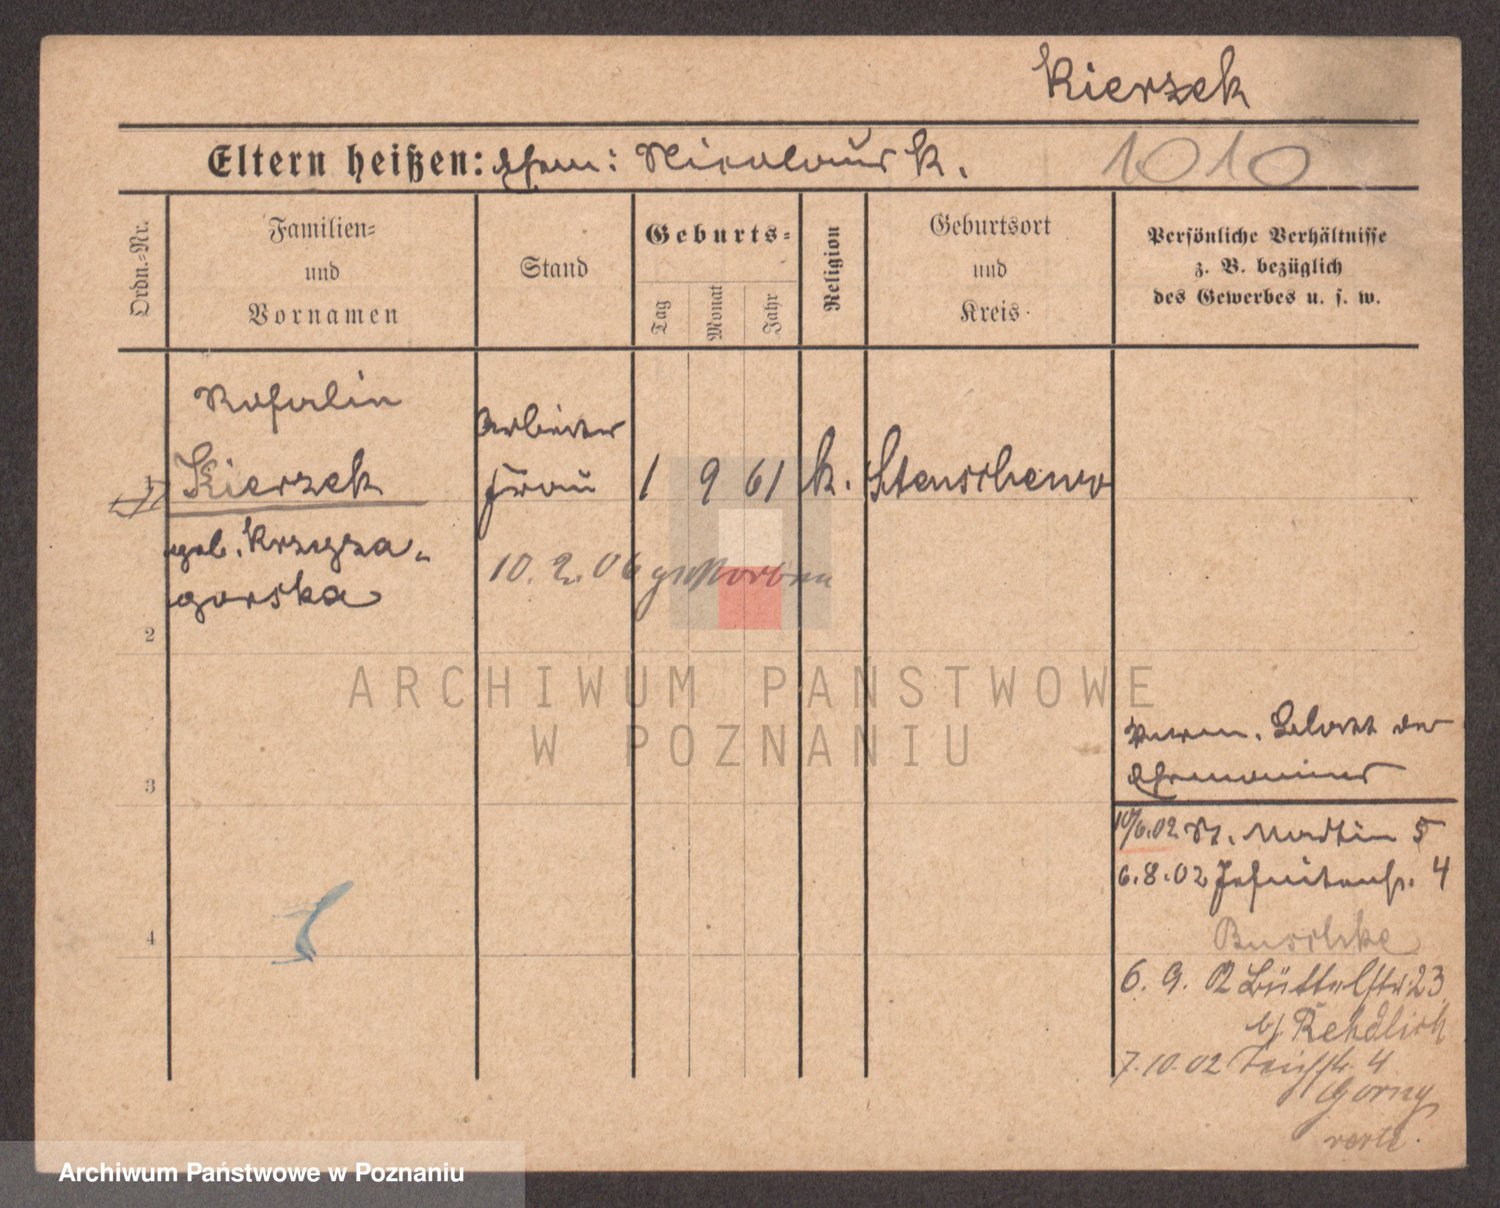 Kierzek
Eltern heißen: Ehem: Nicolaus K.
1010
Ordn.-Nr.
Familien-
und
Vornamen
Stand
Geburts-
Tag
Monat
Jahr
Religion
Geburtsort
und
Kreis
Persönliche Verhältnisse
z. B. bezüglich
des Gewerbes u. s. w.
Rosalin
Arbeiter
1 Kierzek
frau
1 9 61 k. Stenschewo
geb. Krzyza-
gorska
10. 2. 06 gestorben
2
ARCHIWUM PAŃSTWOWE
W POZNANIU
3
Ehemannes
10/6.02 St. Martin 5
6.8.02 Jesuitenstr. 4
Buschke
4
6. 9. 02 Büttelstr. 23
b/ Rehdlich
7.10.02 Teichstr. 4
Gorny
Archiwum Państwowe w Poznaniu